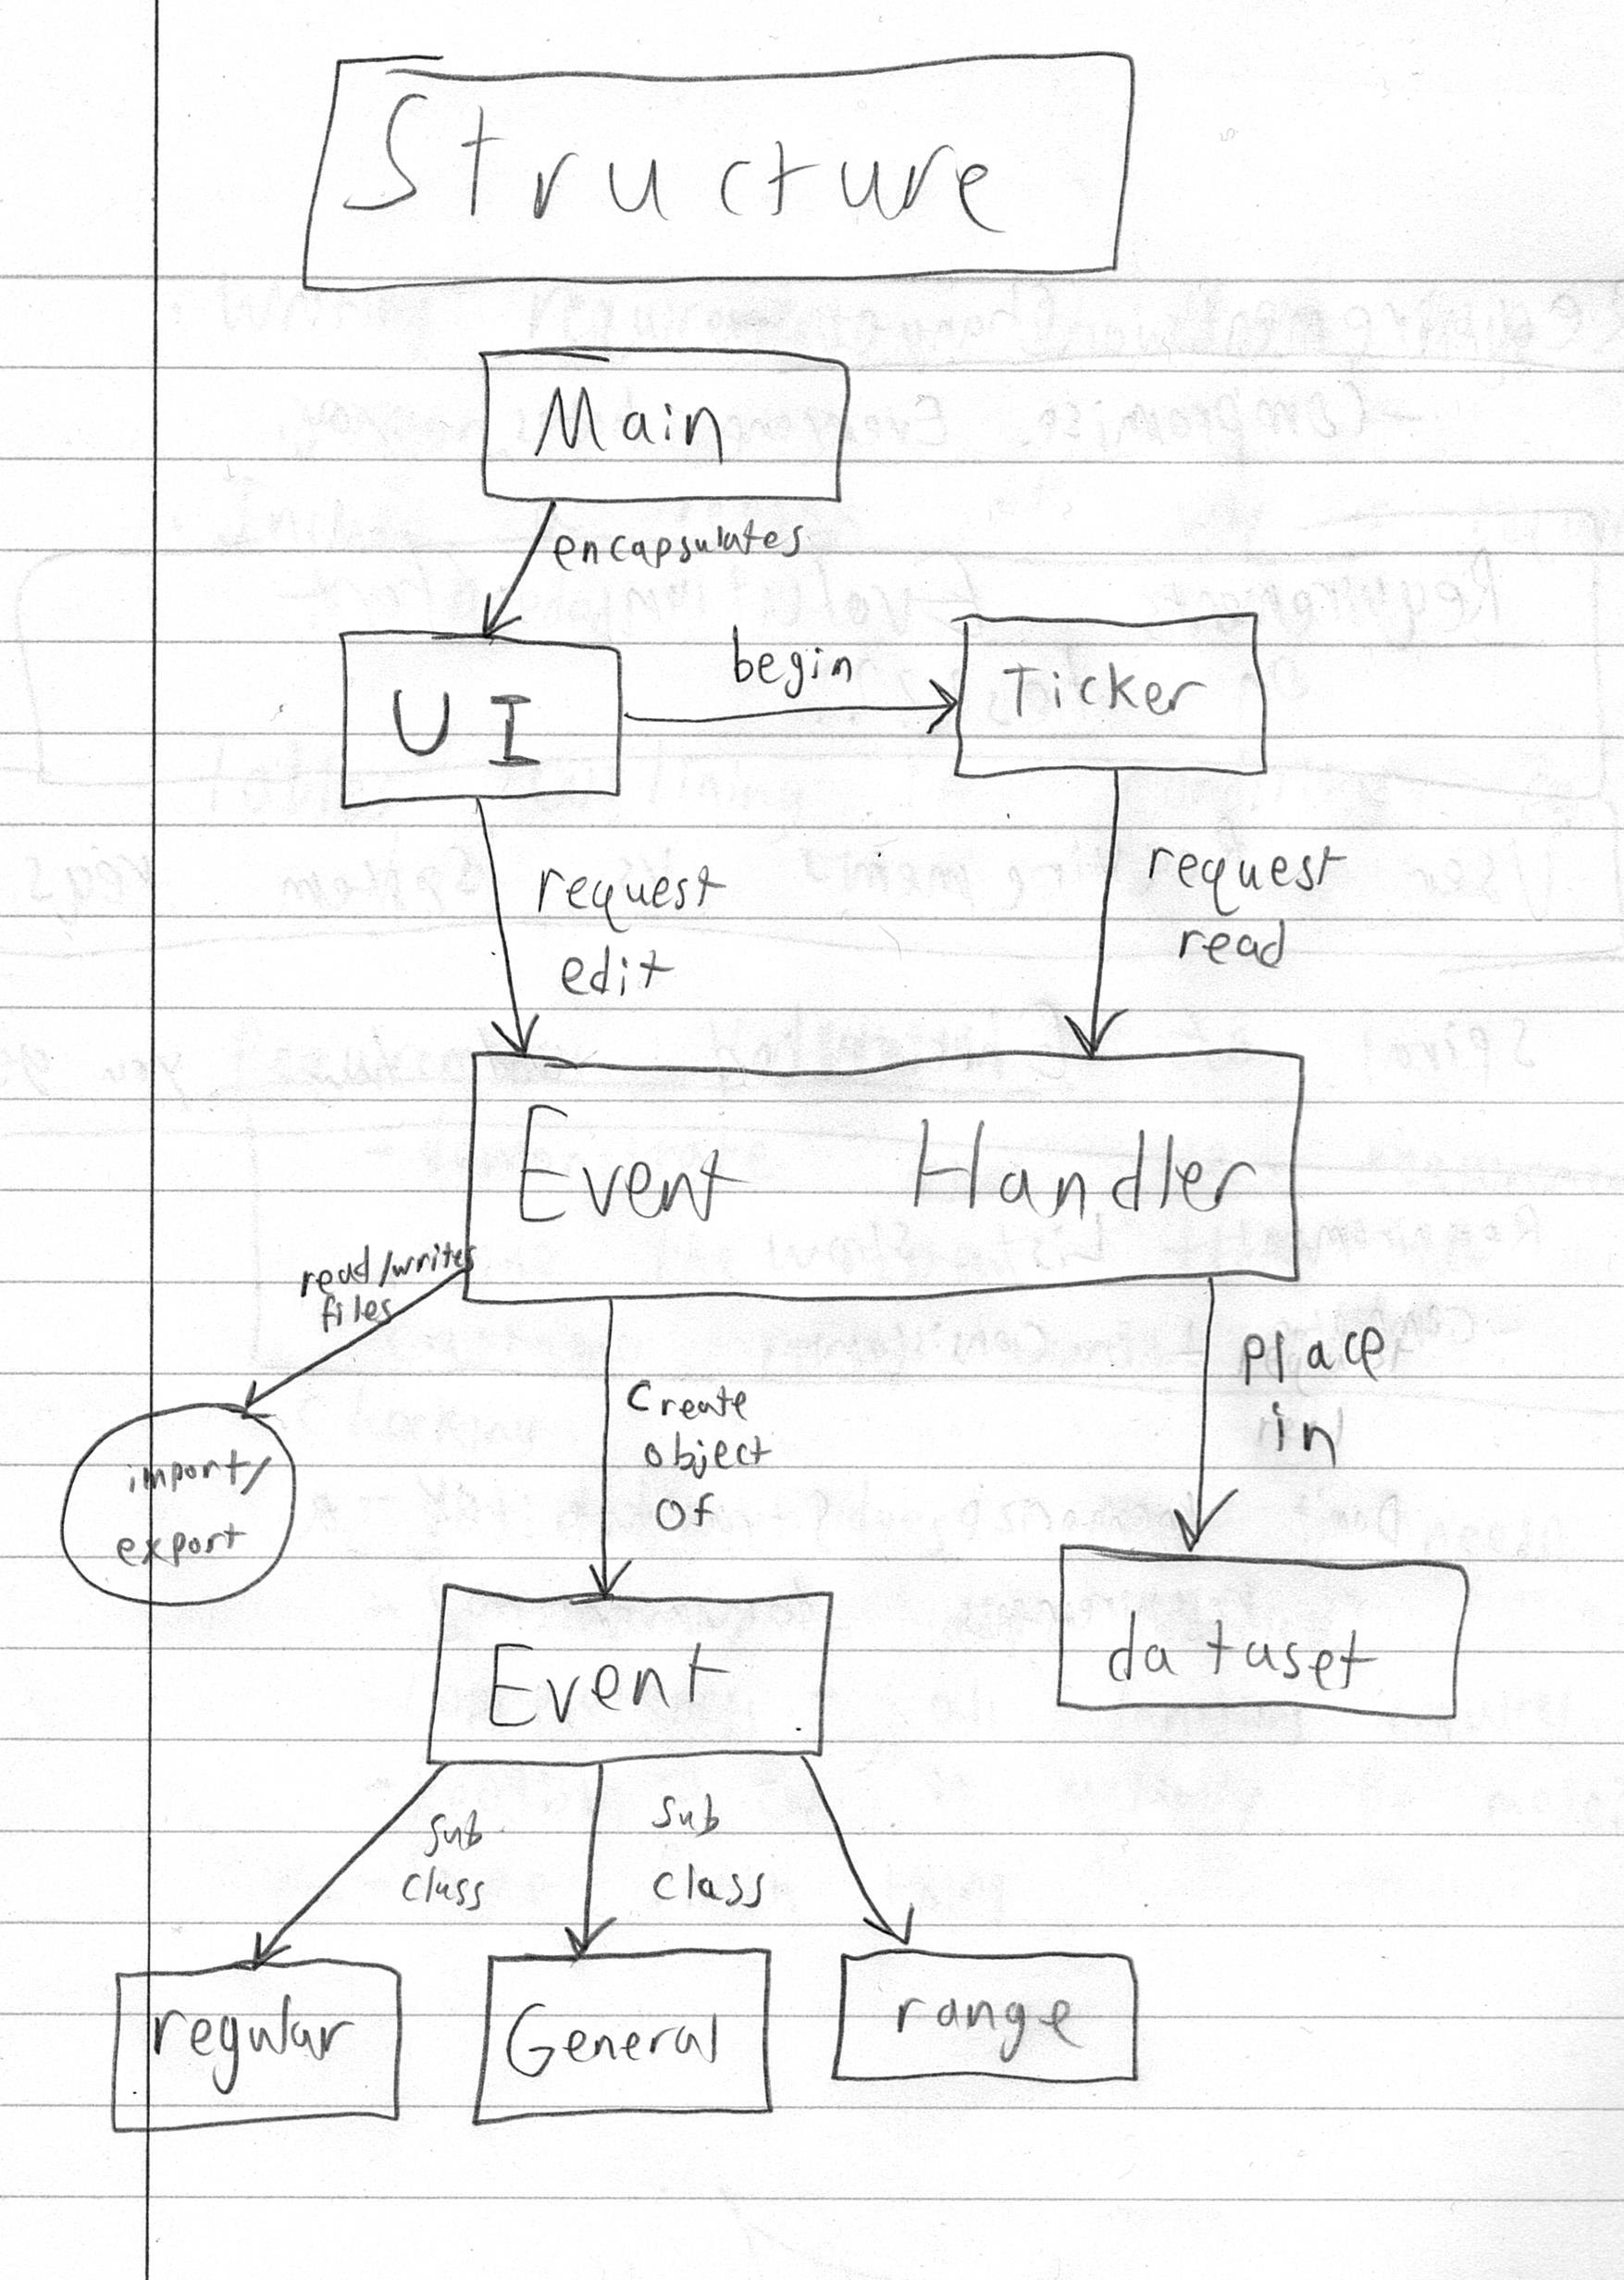 Structure
Main
encapsulates
UI
begin
Ticker
request
edit
request
read
Event Handler
read/writes
files
import/
export
Create
object
of
place
in
Event
dataset
sub
class
sub
class
regular
General
range